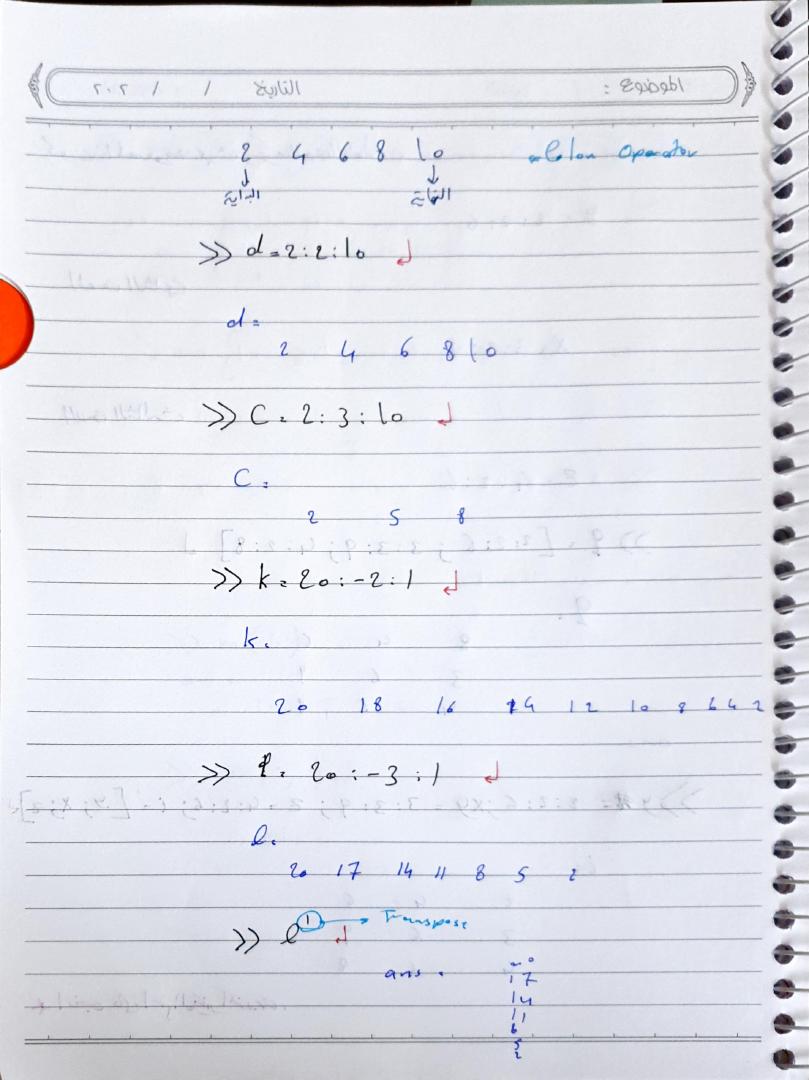 الموضوع :
التاريخ / / ٢٠٢
2 4 6 8 10
Colon Operator
البداية النهاية
>> d = 2 : 2 : 10 ↲
d =
2 4 6 8 10
>> C = 2 : 3 : 10 ↲
C =
2 5 8
>> k = 20 : -2 : 1 ↲
k =
20 18 16 14 12 10 8 6 4 2
>> l = 20 : -3 : 1 ↲
l =
20 17 14 11 8 5 2
>> l' → Transpose ↲
ans =
20
17
14
11
5
2